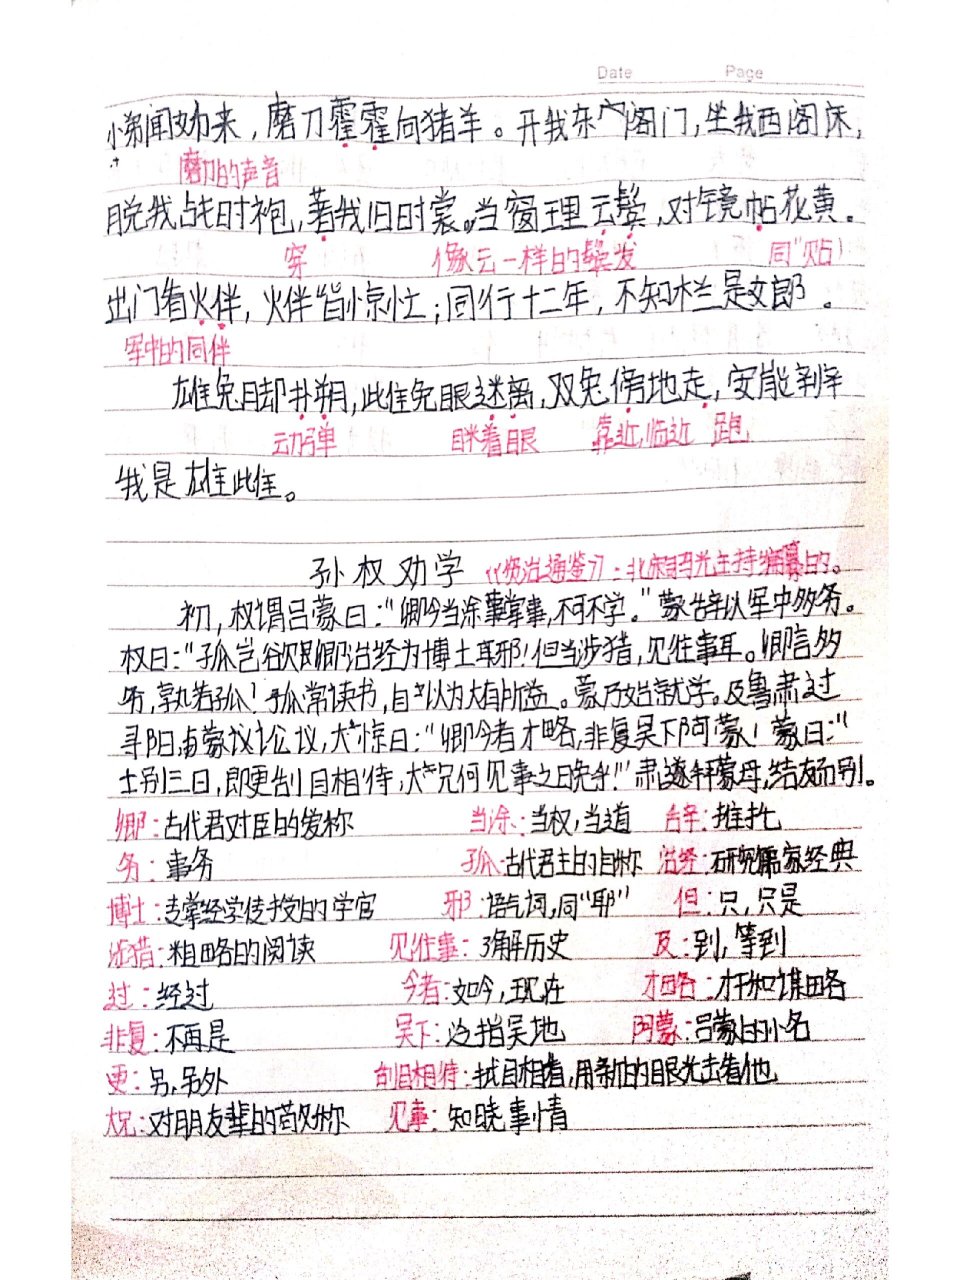 Date Page
小弟闻姊来，磨刀霍霍向猪羊。开我东阁门，坐我西阁床，
磨刀的声音
脱我战时袍，著我旧时裳。当窗理云鬓，对镜帖花黄。
穿 像云一样的鬓发 同“贴）
出门看火伴，火伴皆惊忙；同行十二年，不知木兰是女郎。
军中的同伴
雄兔脚扑朔，雌兔眼迷离，双兔傍地走，安能辨
动弹 眯着眼 靠近，临近 跑
我是雄雌。
孙权劝学 《资治通鉴》：北宋司马光主持编纂的。
初，权谓吕蒙曰：“卿今当涂掌事，不可不学。”蒙辞以军中多务。
权曰：“孤岂欲卿治经为博士耶！但当涉猎，见往事耳。卿言多
务，孰若孤！孤常读书，自以为大有所益。蒙乃始就学。及鲁肃过
寻阳，与蒙议论议，大惊曰：“卿今者才略，非复吴下阿蒙！蒙曰：“
士别三日，即更刮目相待，大兄何见事之晚乎！”肃遂拜蒙母，结友而别。
卿：古代君对臣的爱称 当涂：当权，当道 辞：推托
务：事务 孤：古代君主的自称 治经：研究儒家经典
博士：专掌经学传授的学官 邪：语气词，同“耶” 但：只，只是
涉猎：粗略的阅读 见往事：了解历史 及：到，等到
过：经过 今者：如今，现在 才略：才干和谋略
非复：不再是 吴下：泛指吴地 阿蒙：吕蒙的小名
更：另，另外 刮目相待：拭目相看，用新的眼光去看他
大兄：对朋友辈的敬称 见事：知晓事情